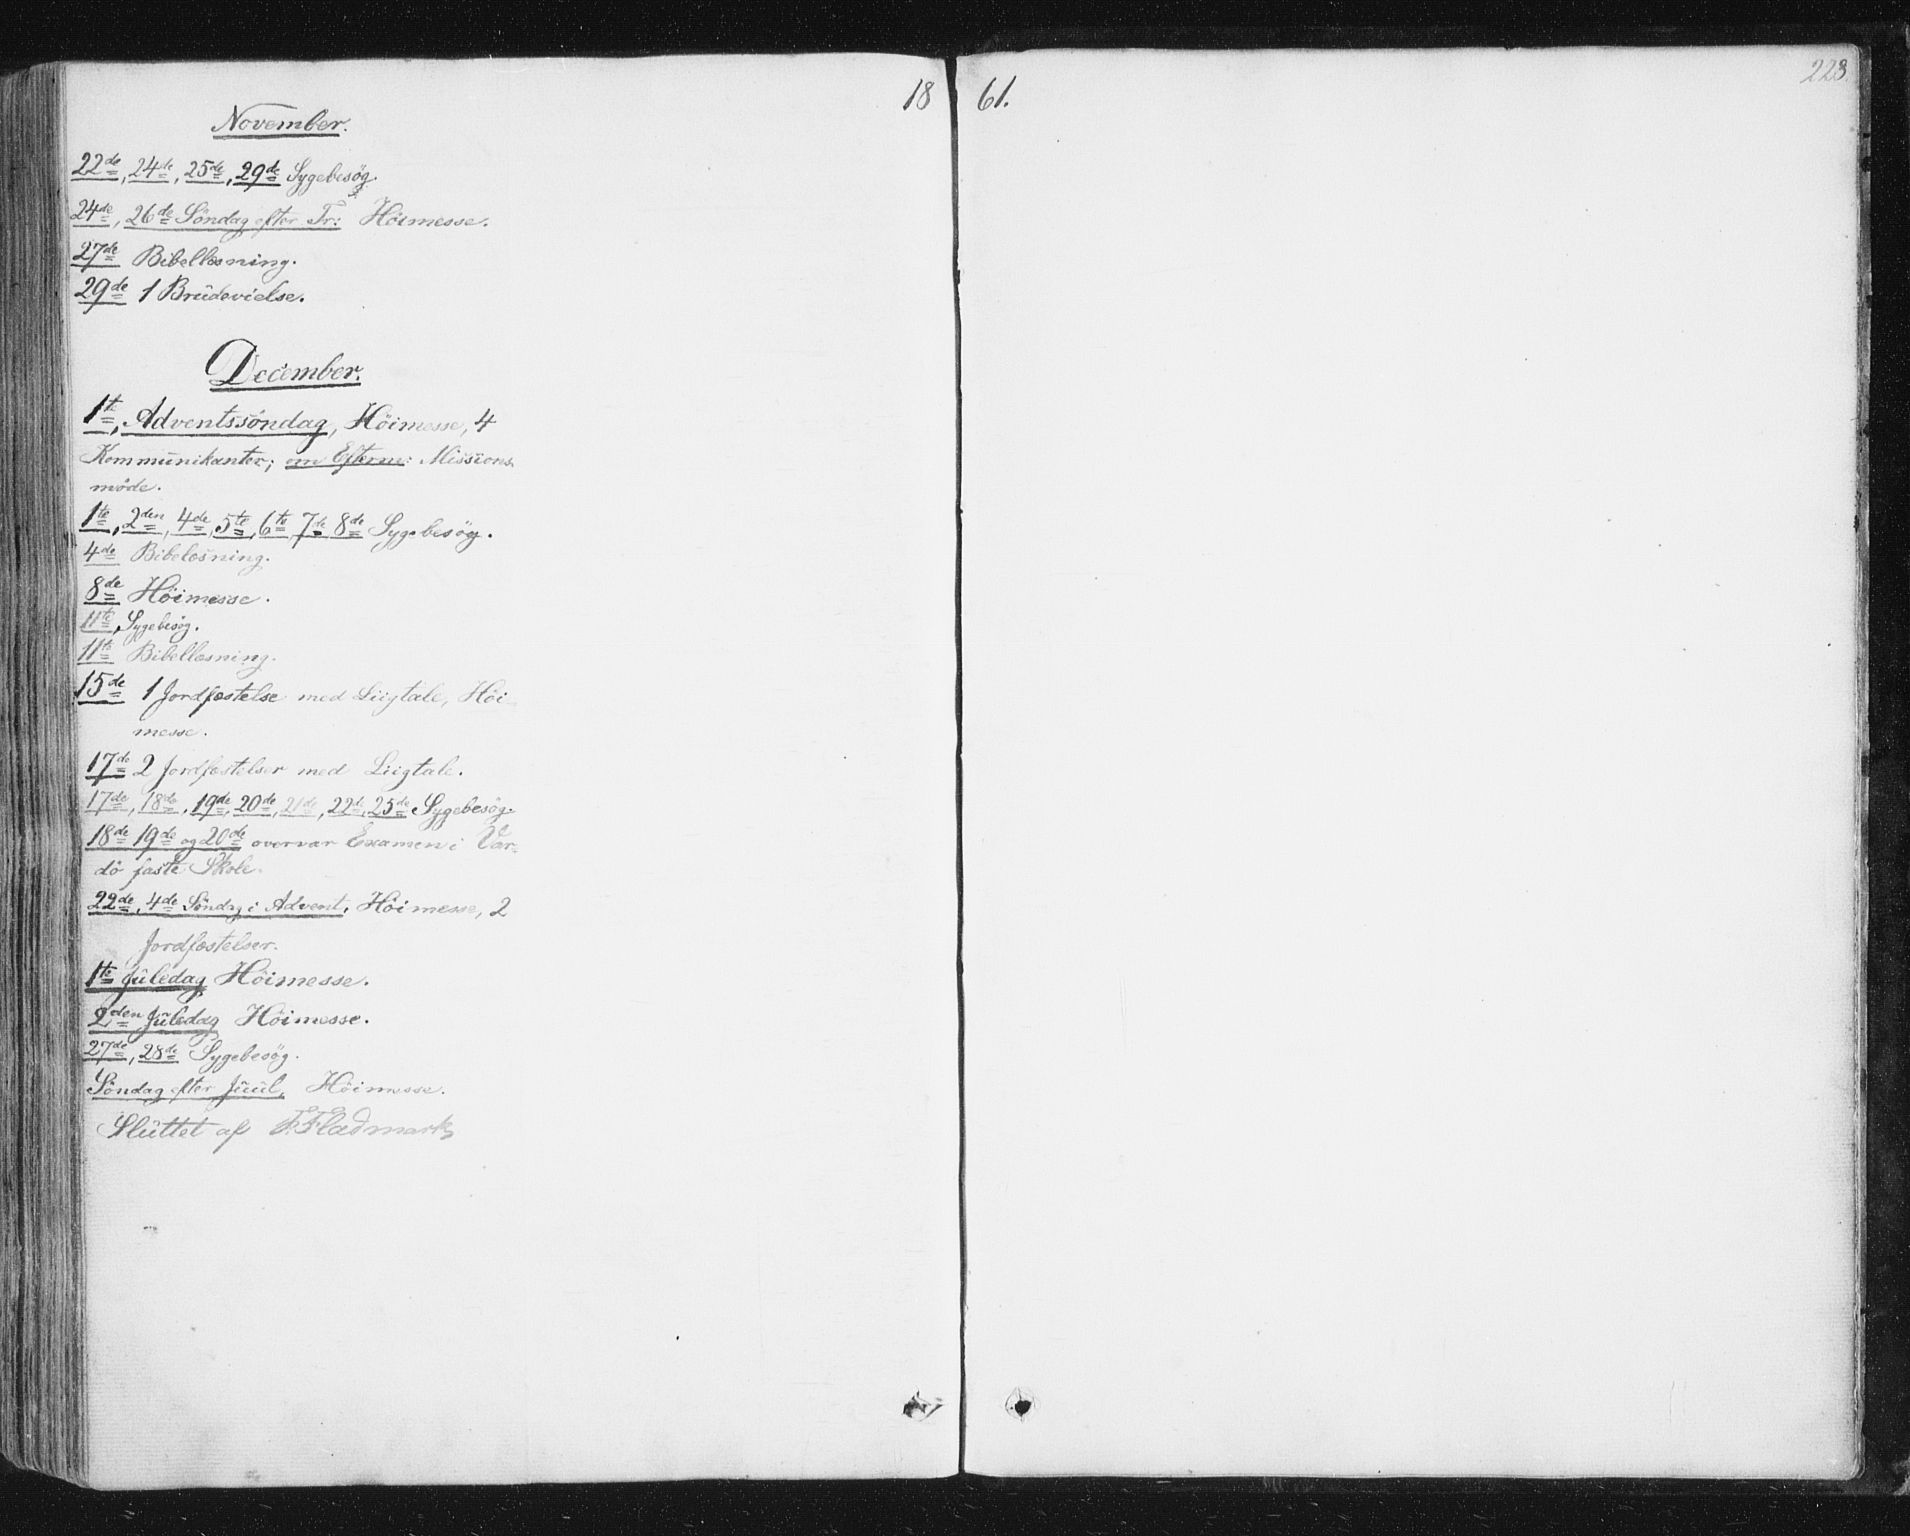 1861.
223.
November.
22de, 24de, 25de, 29de Sygebesög.
24de, 26de Söndag efter Tr: Höimesse.
27de Bibellæsning.
29de 1 Brüdevielse.
December.
1te, Adventssöndag, Höimesse, 4
Kommünikanter; om Efterm: Missions-
möde.
1te, 2den, 4de, 5te, 6te, 7de, 8de Sygebesög.
4de Bibelæsning.
8de Höimesse.
11te, Sygebesög.
11te Bibellæsning.
15de 1 Jordfæstelse med Liigtale, Höi-
messe.
17de 2 Jordfæstelser med Liigtale.
17de, 18de, 19de, 20de, 21de, 22de, 25de Sygebesög.
18de 19de og 20de overvar Examen i Var-
dö faste Skole.
22de, 4de Söndag i Advent, Höimesse, 2
Jordfæstelser.
1te Jüledag Höimesse.
2den Jüledag Höimesse.
27de, 28de Sygebesög.
Söndag efter Jüül, Höimesse.
Slüttet af F. Fladmark